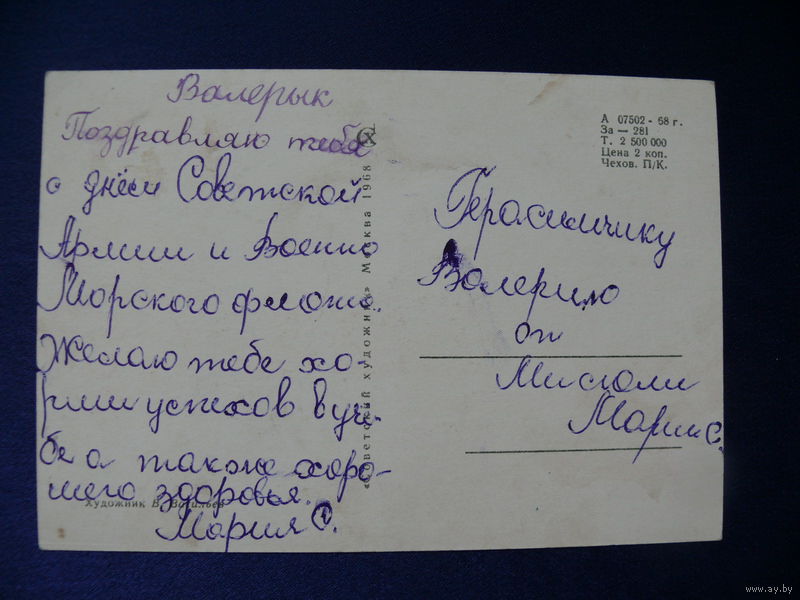 Валерык
Поздравляю тебя
с днём Советской
Армии и Военно
Морского флота.
Желаю тебе хо-
рших успехов в уч-
бе а также хоро-
шего здоровья.
Мария С.
Художник В. Васильев
«Советский художник» Москва 1968
А 07502 - 68 г.
За — 281
Т. 2 500 000
Цена 2 коп.
Чехов. П/К.
Герасимчику
Валерию
от
Марии С.
www.ay.by